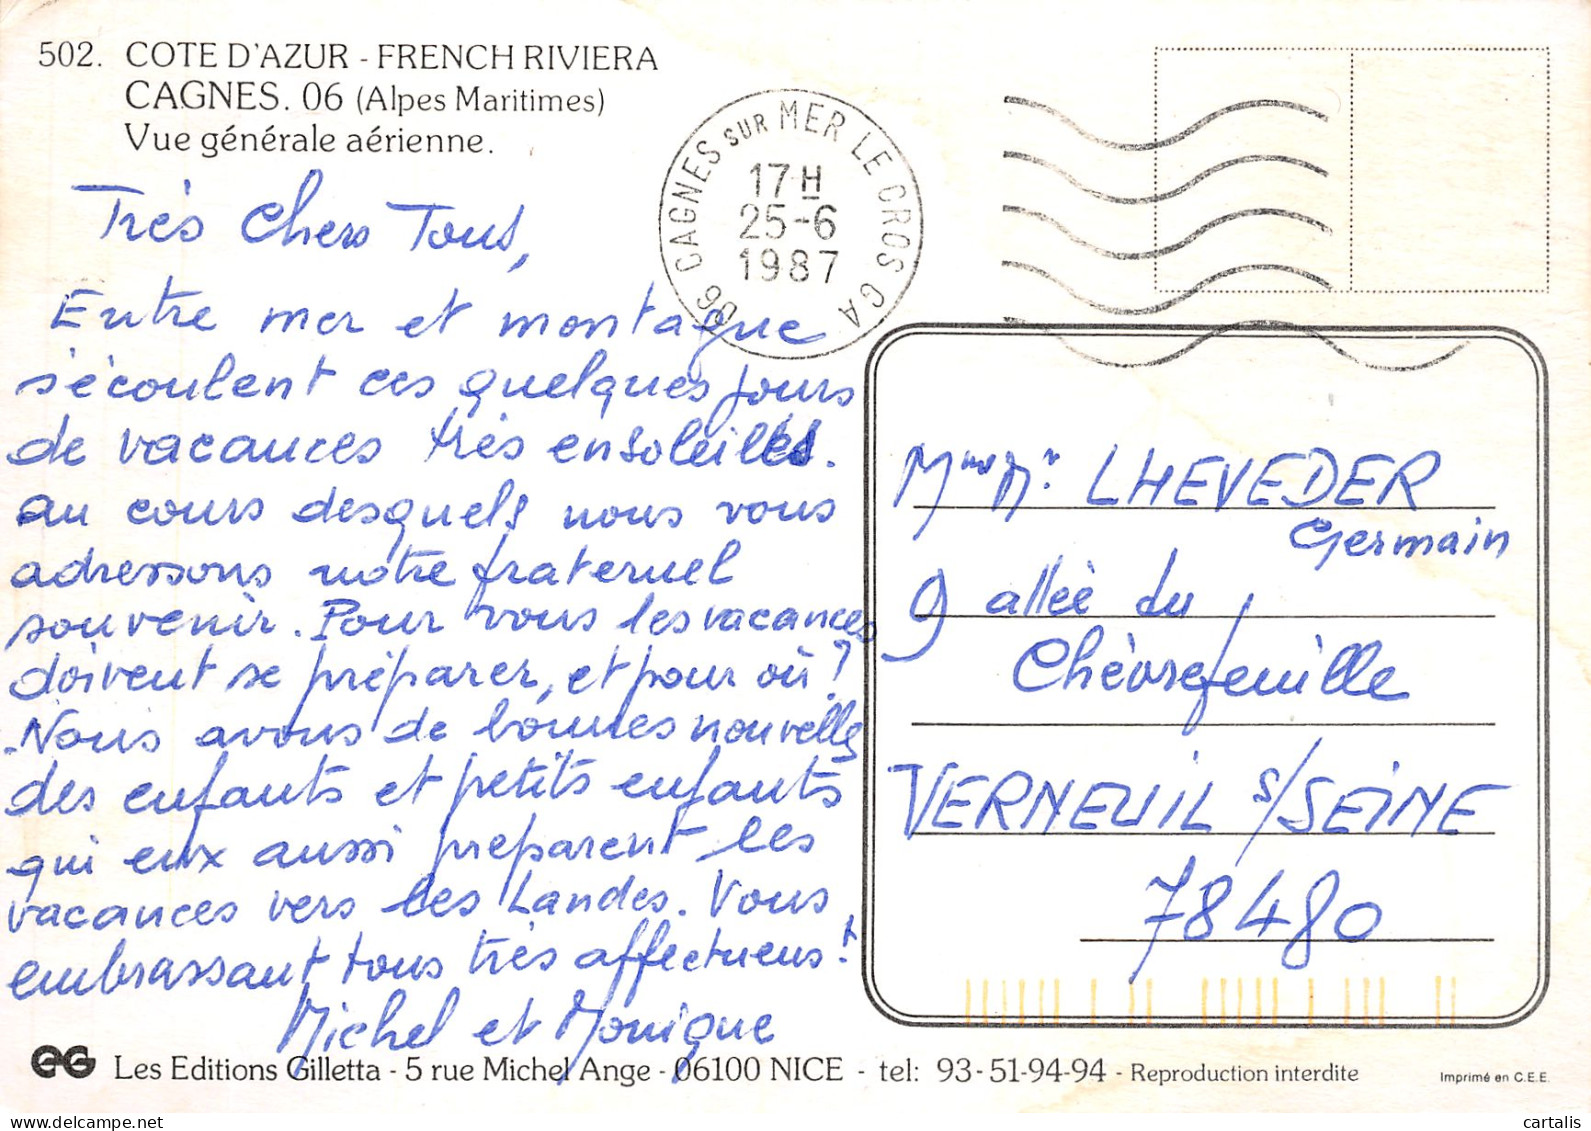 502. COTE D'AZUR - FRENCH RIVIERA
CAGNES. 06 (Alpes Maritimes)
Vue générale aérienne.
06 CAGNES SUR MER LE CROS CA
17 H
25-6
1987
Très Chers Tous,
Entre mer et montagne
s'écoulent ces quelques jours
de vacances très ensoleillés.
au cours desquels nous vous
adressons notre fraternel
souvenir. Pour vous les vacances
doivent se préparer, et pour où ?
Nous avons de bonnes nouvelles
des enfants et petits enfants
qui eux aussi préparent les
vacances vers les Landes. Vous
embrassant tous très affectueus.t
Michel et Monique
M. LHEVEDER
Germain
9 allée du
Chèvrefeuille
VERNEUIL s/SEINE
78480
EG Les Editions Gilletta - 5 rue Michel Ange - 06100 NICE - tel: 93-51-94-94 - Reproduction interdite
Imprimé en C.E.E.
cartalis